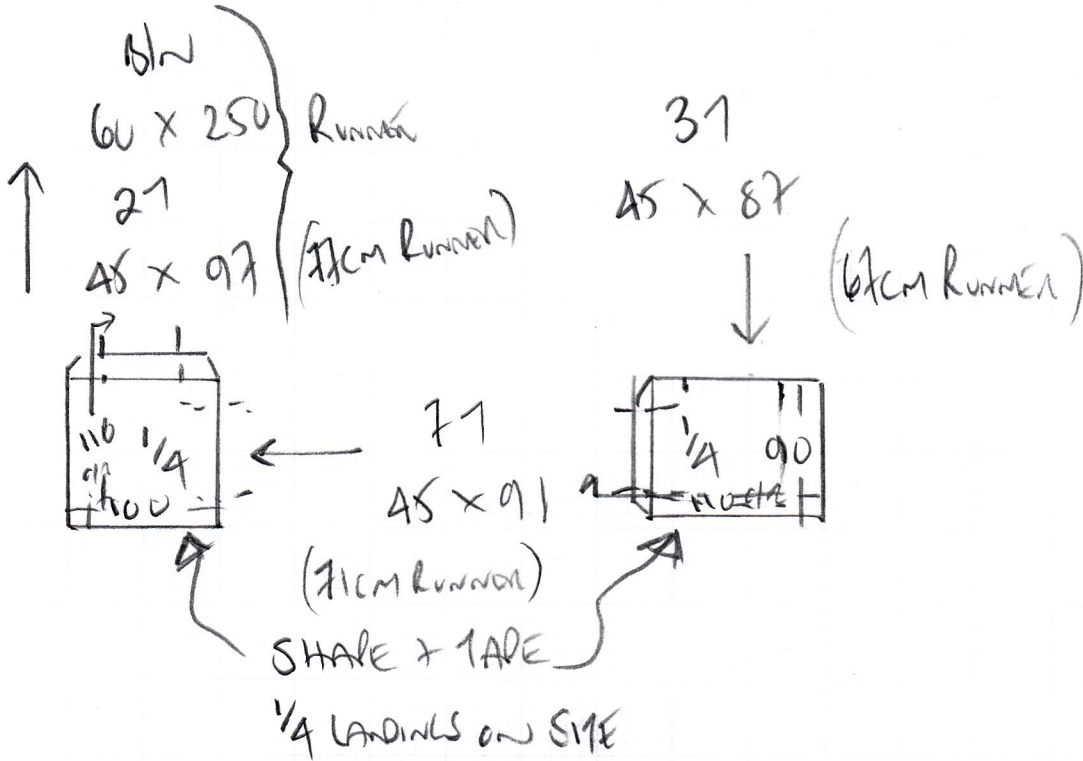 60 X 250 RUNNER
2T
45 X 97
(77CM RUNNER)
3T
45 X 87
(67CM RUNNER)
110 1/4
100
7T
45 X 91
(71CM RUNNER)
1/4 90
SHAPE + TAPE
1/4 LANDINGS ON SITE